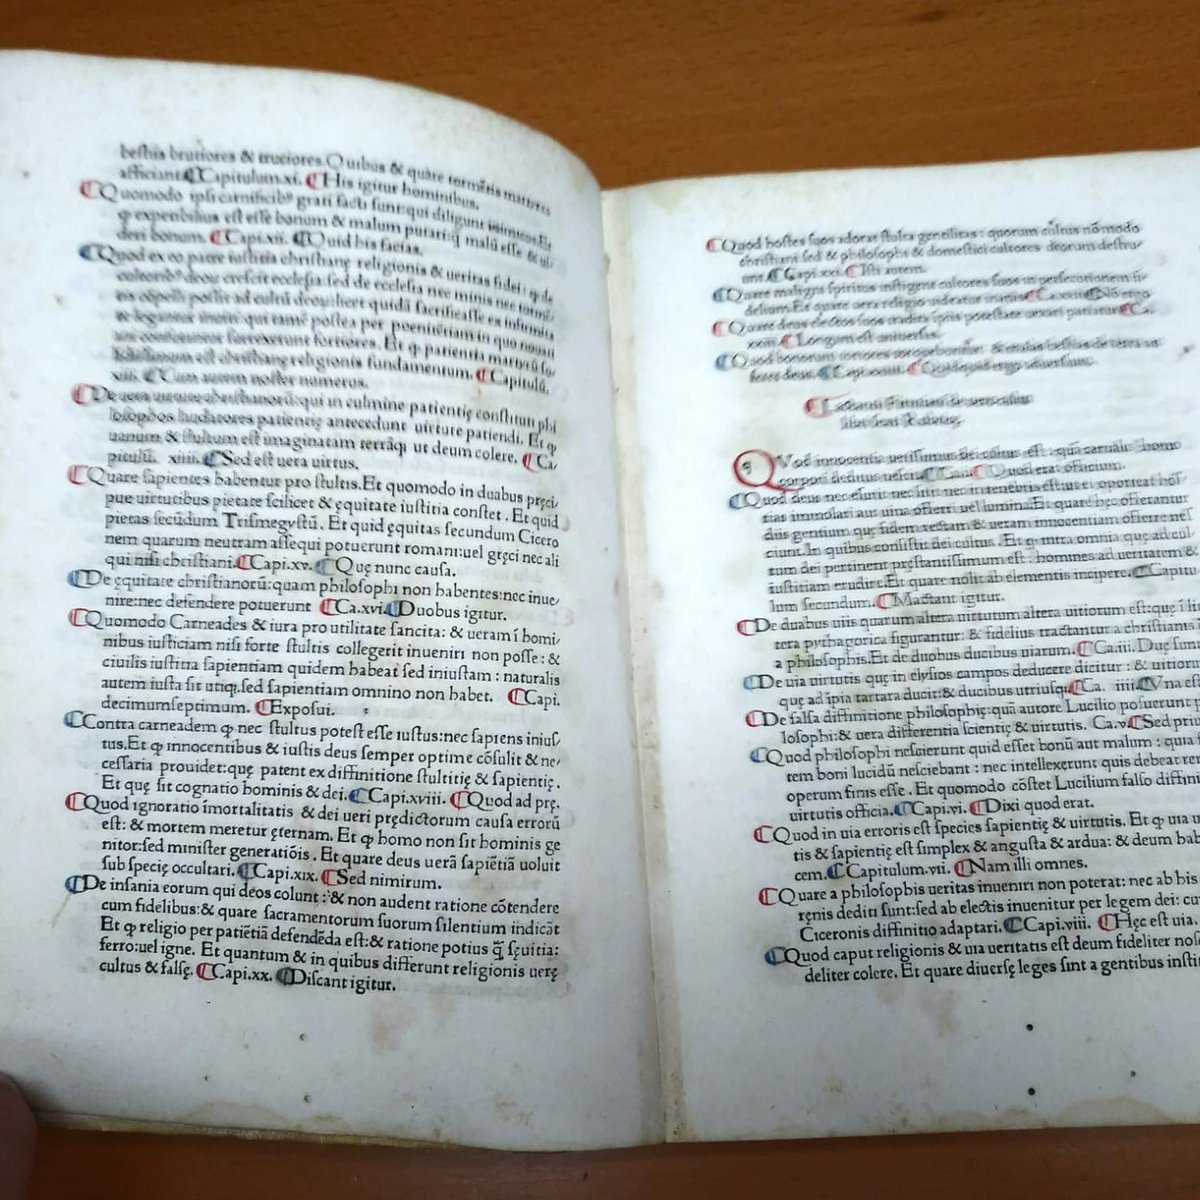 bestiis brutiores & truciores. Quibus & quare tormētis martyres
afficiant. ⸿Capitulum.xi. ⸿His igitur hominibus.
⸿Quomodo ipsi carnificibꝰ grati facti sunt: qui diligunt inimicos. Et
ꝙ expetibilius est esse bonum & malum putari: ꝗ̃ malū esse & ui⸗
deri bonum. ⸿Capi.xii. ⸿Quid his facias.
⸿Quod ex eo patre iustitia christianę religionis & ueritas fidei: ꝙ de
cultoribꝰ deoꝝ crescit ecclesia: sed de ecclesia nec minis nec tormē⸗
eis cōpelli possit ad cultū deoꝝ: licet quidā
poenitētiam in quo
surrexerunt fortiores. Et ꝙ patientia martyrū
est christianę religionis fundamentum. ⸿Capitulū.
xiii. ⸿Cum autem noster numerus.
⸿De uera uirtute christianorū: qui in culmine patientię constituti phi
losophos laudatores patientię antecedunt uirtute patiendi. Et ꝙ
uanum & stultum est imaginatam terrāqꝫ ut deum colere. ⸿Ca⸗
pitulū. xiiii. ⸿Sed est uera uirtus.
⸿Quare sapientes habentur pro stultis. Et quomodo in duabus pręci⸗
pue uirtutibus pietate scilicet & ęquitate iustitia constet. Et quid
pietas secūdum Trismegystū. Et quid ęquitas secundum Cicero
nem quarum neutram assequi potuerunt romani: uel gręci nec ali
qui nisi christiani. ⸿Capi.xv. ⸿Quę nunc causa.
⸿De ęquitate christianorū: quam philosophi non habentes: nec inue⸗
nire: nec defendere potuerunt ⸿Ca.xvi. ⸿Duobus igitur.
⸿Quomodo Carneades & iura pro utilitate sancita: & ueram ī homi⸗
nibus iusticiam nisi forte stultis collegerit inueniri non posse: &
ciuilis iustitia sapientiam quidem habeat sed iniustam: naturalis
autem iusta sit utiqꝫ. sed sapientiam omnino non habet. ⸿Capi.
decimumseptimum. ⸿Exposui.
⸿Contra carneadem ꝙ nec stultus potest esse iustus: nec sapiens inius⸗
tus. Et ꝙ innocentibus & iustis deus semper optime cōsulit & ne⸗
cessaria prouidet: quę patent ex diffinitione stultitię & sapientię.
Et quę sit cognatio hominis & dei. ⸿Capi.xviii. ⸿Quod ad prę.
⸿Quod ignoratio īmortalitatis & dei ueri prędictorum causa errorū
est: & mortem meretur ęternam. Et ꝙ homo non sit hominis ge
nitor: sed minister generatiōis. Et quare deus uerā sapiētiā uoluit
sub specię occultari. ⸿Capi.xix. ⸿Sed nimirum.
⸿De insania eorum qui deos colunt: & non audent ratione cōtendere
cum fidelibus: & quare sacramentorum suorum silentium indicāt
Et ꝙ religio per patiētiā defendēda est: & ratione potius ꝗ̃ sęuitia:
ferro: uel igne. Et quantum & in quibus differunt religionis uerę
cultus & falsę. ⸿Capi.xx. ⸿Discant igitur.
⸿Quod hostes suos adorat stulta gentilitas: quorum cultus nō modo
christiani sed & philosophi & domestici cultores deorum destru⸗
unt. ⸿Capi.xxi. ⸿Isti autem.
⸿Quare maligni spiritus instigent cultores suos in persecutionem fi⸗
delium. Et quare uera religio uideatur ⸿Ca.xxii. ⸿Nō ergo
⸿Quare deus electos suos tradita ipsis potestate uexari patiatur. ⸿Ca.
xxiii. ⸿Longum est
⸿Quod bonorum
deus. ⸿Capi.xxiiii. ⸿Quidquid ergo
⸿Lactantii Firmiani de uero cultu
liber sextus
QVod innocentia uerissimus dei cultus est: quā carnalis homo
corpori deditus nescit. ⸿Ca.i. ⸿Quod erat officium.
⸿Quod deus nec esurit nec sitit nec in tenebris est: ut ei oporteat hos⸗
tias immolari aut uina offerri uel lumina. Et quare hęc offerantur
diis gentium quę fidem rectam & ueram innocentiam offerre nes
ciunt. In quibus consistit dei cultus. Et ꝙ intra omnia quę ad cul⸗
tum dei pertinent pręstantissimum est: homines ad ueritatem &
iustitiam erudire. Et quare nolit ab elementis incipere. ⸿Capitu
lum secundum. ⸿Mactant igitur.
⸿De duabus uiis quarum altera uirtutum altera uitiorum est: quę ī li
tera pythagorica figurantur: & fidelius tractantur a christianis
a philosophis. Et de duobus ducibus uiarum. ⸿Ca.iii. Duę sunt
⸿De uia uirtutis quę in elysios campos deducere dicitur: & uitioru
quę ad ipsa tartara ducit: & ducibus utriusqꝫ. ⸿Ca. iiii. ⸿Vna est
⸿De falsa diffinitione philosophię: quā autore Lucilio posuerunt p
losophi: & uera differentia scientię & uirtutis. Ca.v. ⸿Sed pri
⸿Quod philosophi nescierunt quid esset bonū aut malum: quia f
tem boni lucidū nesciebant: nec intellexerunt quis debeat rer
operum finis esse. Et quomodo cōstet Lucilium falso diffini
uirtutis officia. ⸿Capi.vi. ⸿Dixi quod erat.
⸿Quod in uia erroris est species sapientię & uirtutis. Et ꝙ uia u
tis & sapientię est simplex & angusta & ardua: & deum hab
cem. ⸿Capitulum.vii. ⸿Nam illi omnes.
⸿Quare a philosophis ueritas inueniri non poterat: nec ab his
ręnis dediti sunt: sed ab electis inuenitur per legem dei: cu
Ciceronis diffinitio adaptari. ⸿Capi.viii. ⸿Hęc est uia.
⸿Quod caput religionis & uia ueritatis est deum fideliter nos
deliter colere. Et quare diuersę leges sint a gentibus instit